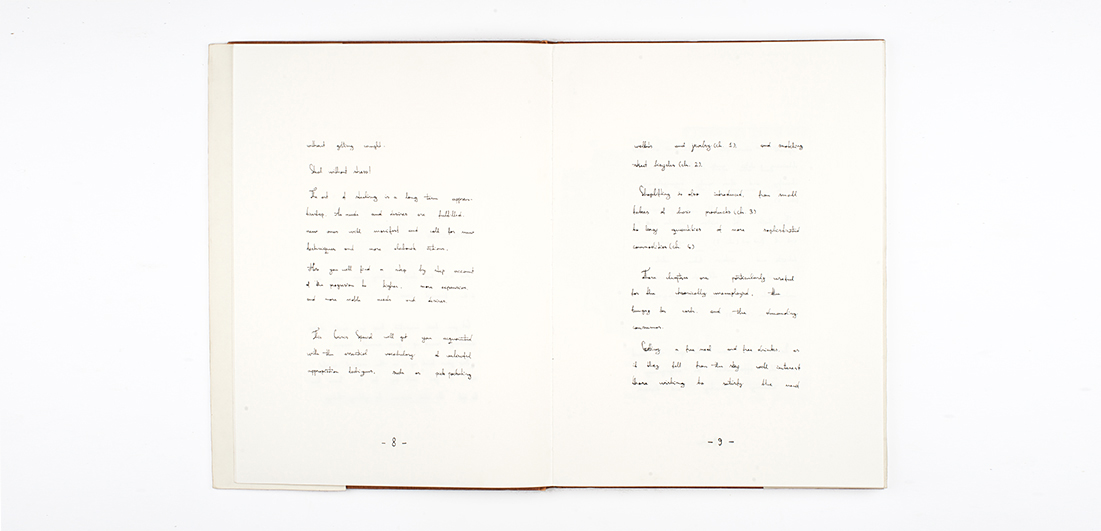 without getting caught.
Steal without stress!
The art of stealing is a long term appren-
ticeship. As needs and desires are fulfilled.
new ones will manifest and call for new
techniques and more elaborate actions.
Here you will find a step by step account
of the progression to higher, more expensive
and more noble needs and desires.
This Course Spread will get you acquainted
with the essential vocabulary of
appropriation techniques, such as pick pocketing
- 8 -
wallets and jewelry (ch. 1). and snatching
street bicycles (ch. 2).
Shoplifting is also introduced, from small
takes of basic products (ch. 3)
to large quantities of more sophisticated
commodities (ch. 4)
These chapters are particularly useful
for the chronically unemployed, the
hungry for cash, and the demanding
consumer.
Getting a free meal and free drinks, as
if they fell from the sky will interest
those wishing to satisfy the need
- 9 -